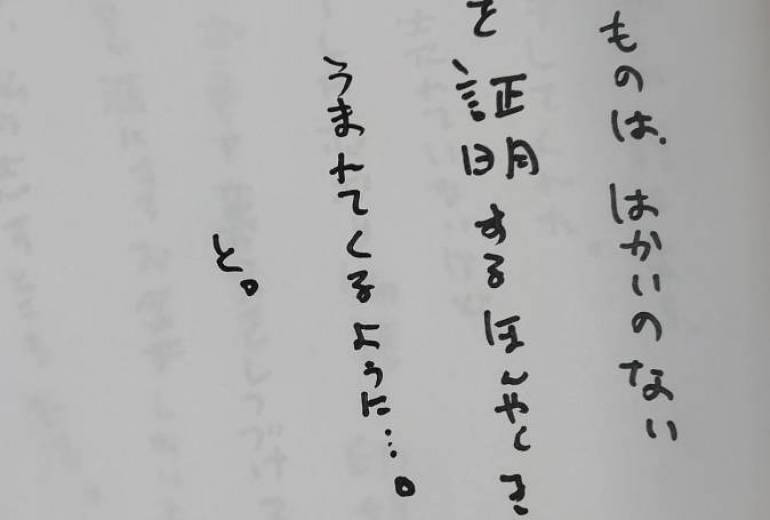 ものは、はかいのない
を証明するほんやくき
うまれてくるように…。
と。